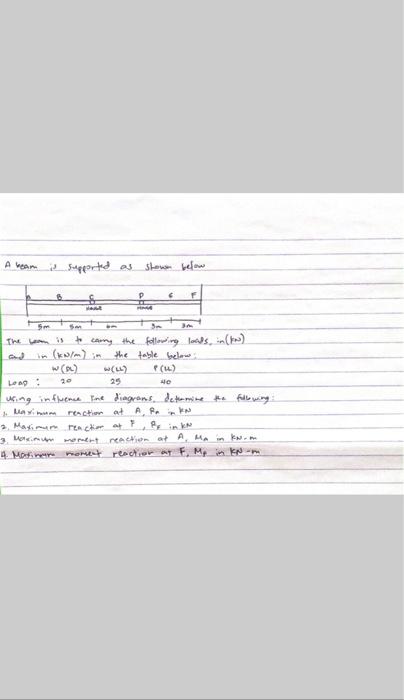 A beam is supported as shown below
A B C D E F
HINGE HINGE
5m 5m 6m 3m 3m
The beam is to carry the following loads, in (kN)
and in (kN/m) in the table below:
W (DL) W (LL) P (LL)
LOAD : 20 25 40
Using influence line diagrams, determine the following:
1. Maximum reaction at A, RA in kN
2. Maximum reaction at F, RF in kN
3. Maximum moment reaction at A, MA in kN-m
4. Maximum moment reaction at F, MF in kN-m